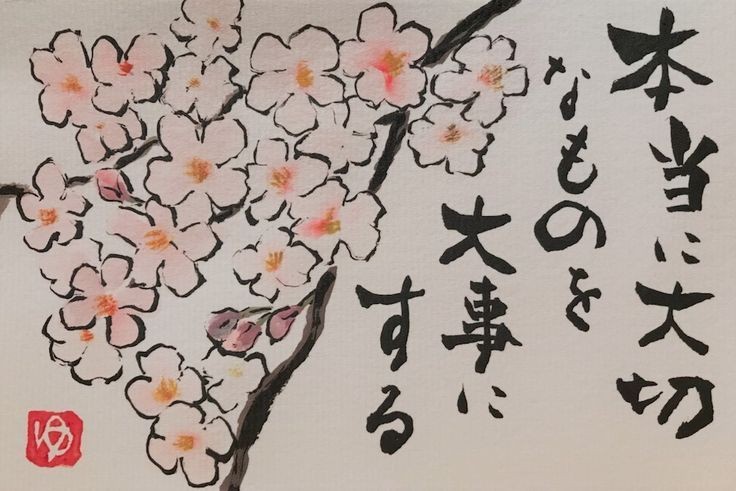 本当に大切
なものを
大事に
する
ゆ